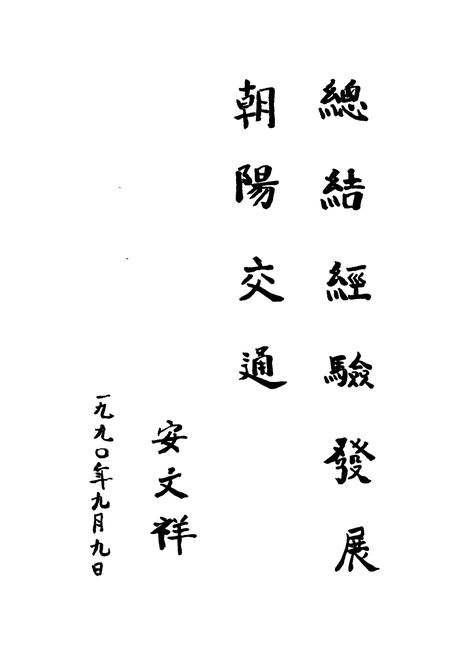 總結經驗發展
朝陽交通
安文祥
一九九〇年九月九日